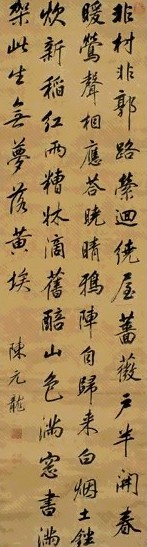 非村非郭路縈迴繞屋薔薇戶半開春
暖鶯聲相應荅晚晴鴉陣自歸来白烟土銼
炊新稻紅雨糟牀滴舊醅山色滿窓書滿
架此生無夢落黃埃
陳元龍